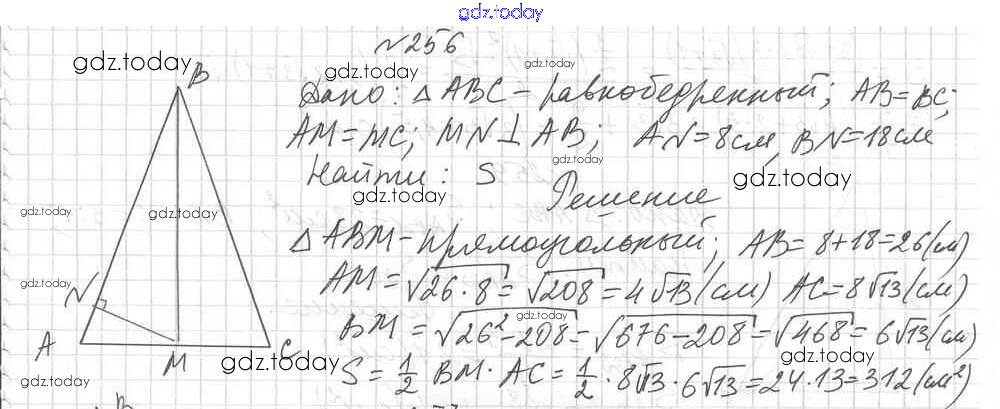 gdz.today
№256
gdz.today
gdz.today
gdz.today
B
Дано: △ABC – равнобедренный; AB=BC;
AM=MC; MN⊥AB; AN=8см, BN=18см
gdz.today
Найти: S
gdz.today
gdz.today
Решение
gdz.today
gdz.today
△ABM – прямоугольный; AB=8+18=26(см)
gdz.today
N
AM=√26·8=√208=4√13(см) AC=8√13(см)
gdz.today
BM=√26²-208=√676-208=√468=6√13(см)
A
M
C
gdz.today
gdz.today
S=1/2 BM·AC=1/2·8√13·6√13=24·13=312(см²)
gdz.today
gdz.today
B